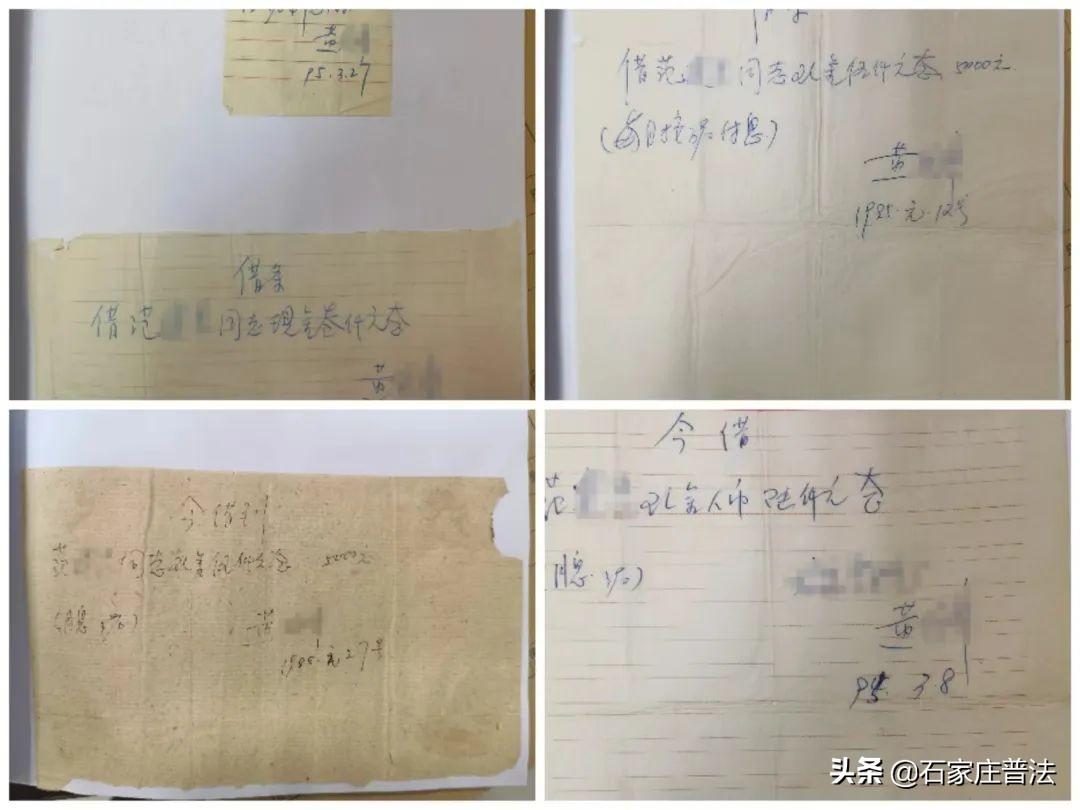 黄
95.3.27
借条
借范 同志现金叁仟元整
黄
借范 同志现金伍仟元整 5000元
(每月按3%付息)
黄
1995.元.12号
今借到
范 同志现金伍仟元整 5000元
(月息3%)
黄
1995.元.27号
今借
范 现金人币陆仟元整
月息3%)
黄
95.3.8
头条 @石家庄普法